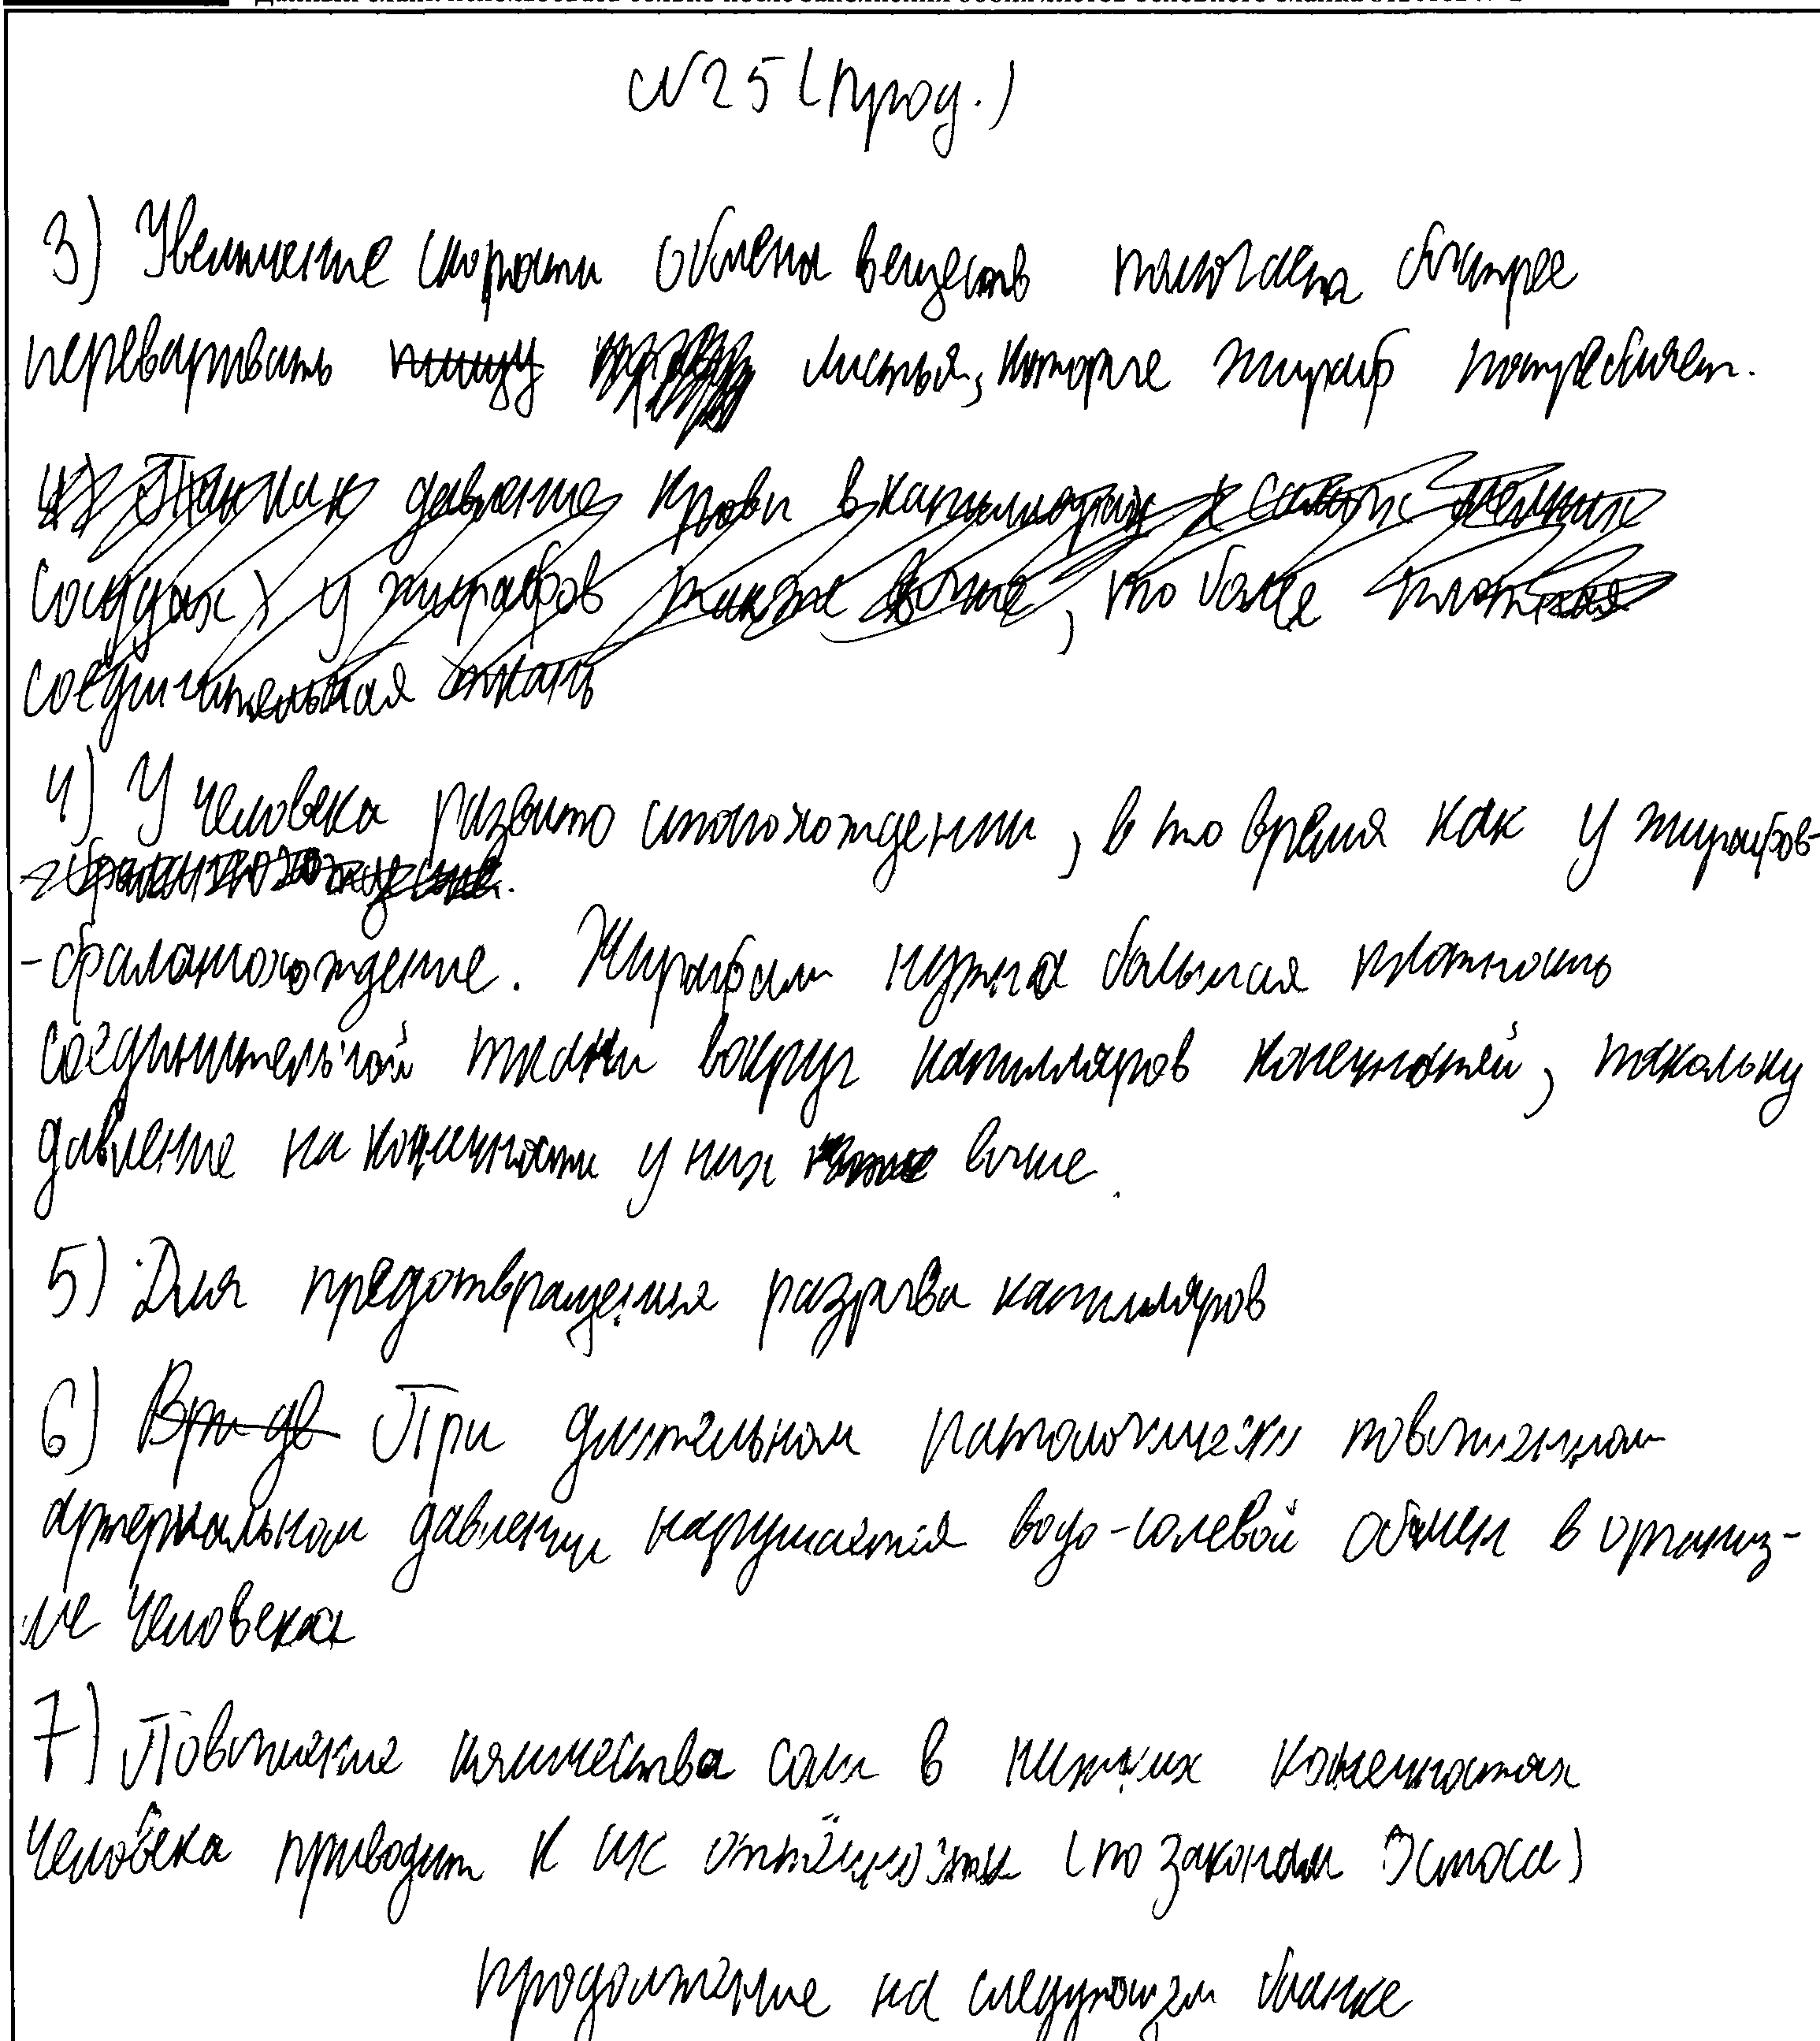 №25 (прод.)
3) Увеличение скорости обмена веществ помогает быстрее
переваривать пищу листья, которые жираф потребляет.
4) Так как давление крови в капиллярах (самых мелких
сосудах) у жирафов также выше, то более плотная
соединительная ткань
4) У человека развито стопохождении, в то время как у жирафов-
-фалангохождение. Жирафам нужна большая плотность
соединительной ткани вокруг капилляров конечностей, поскольку
давление на конечности у них выше.
5) Для предотвращения разрыва капилляров
6) При длительном патологически повышенном
артериальном давлении нарушается водо-солевой обмен в организ-
ме человека
7) Повышение количества соли в нижних конечностях
человека приводит к их отёчности (по законам Эсмоса)
продолжение на следующем бланке